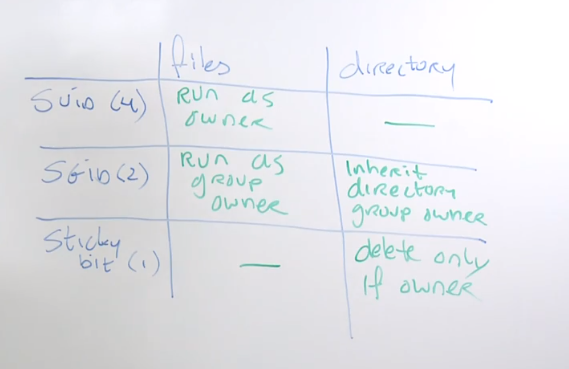 files directory
SUID (4) Run as owner —
SGID (2) Run as group owner Inherit directory group owner
Sticky bit (1) — delete only If owner